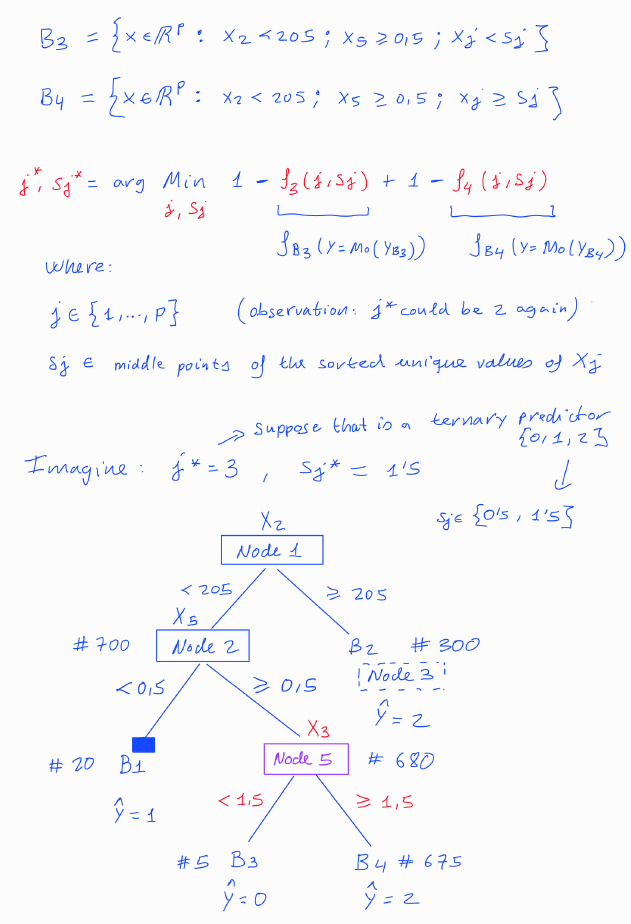 B3 = {x∈ℝᵖ : X2 < 205 ; X5 ≥ 0,5 ; Xj < Sj }
B4 = {x∈ℝᵖ : X2 < 205 ; X5 ≥ 0,5 ; Xj ≥ Sj }
j*, Sj* = arg Min 1 - f3 (j, Sj) + 1 - f4 (j, Sj)
j, Sj
fB3 (Y = Mo(YB3)) fB4 (Y = Mo(YB4))
where:
j ∈ {1,..., P} (observation: j* could be 2 again)
Sj ∈ middle points of the sorted unique values of Xj
suppose that is a ternary predictor
{0, 1, 2}
Imagine: j* = 3 , Sj* = 1'5
Sj ∈ {0'5 , 1'5}
X2
Node 1
< 205 ≥ 205
X5
# 700 Node 2 B2 # 300
Node 3
< 0,5 ≥ 0,5
Ŷ = 2
X3
# 20 B1 Node 5 # 680
< 1,5 ≥ 1,5
Ŷ = 1
# 5 B3 B4 # 675
Ŷ = 0 Ŷ = 2